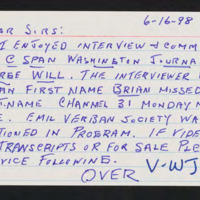 6-16-98
AR SIRS:
I ENJOYED INTERVIEW & COMM
C SPAN WASHINGTON JOURNA
RGE WILL. THE INTERVIEWER
AN FIRST NAME BRIAN MISSED
TNAME CHANNEL 31 MONDAY M
E. EMIL VERBAN SOCIETY WA
TIONED IN PROGRAM. IF VIDE
TRANSCRIPTS OR FOR SALE PLE
VICE FOLLOWING.
OVER V-WJ